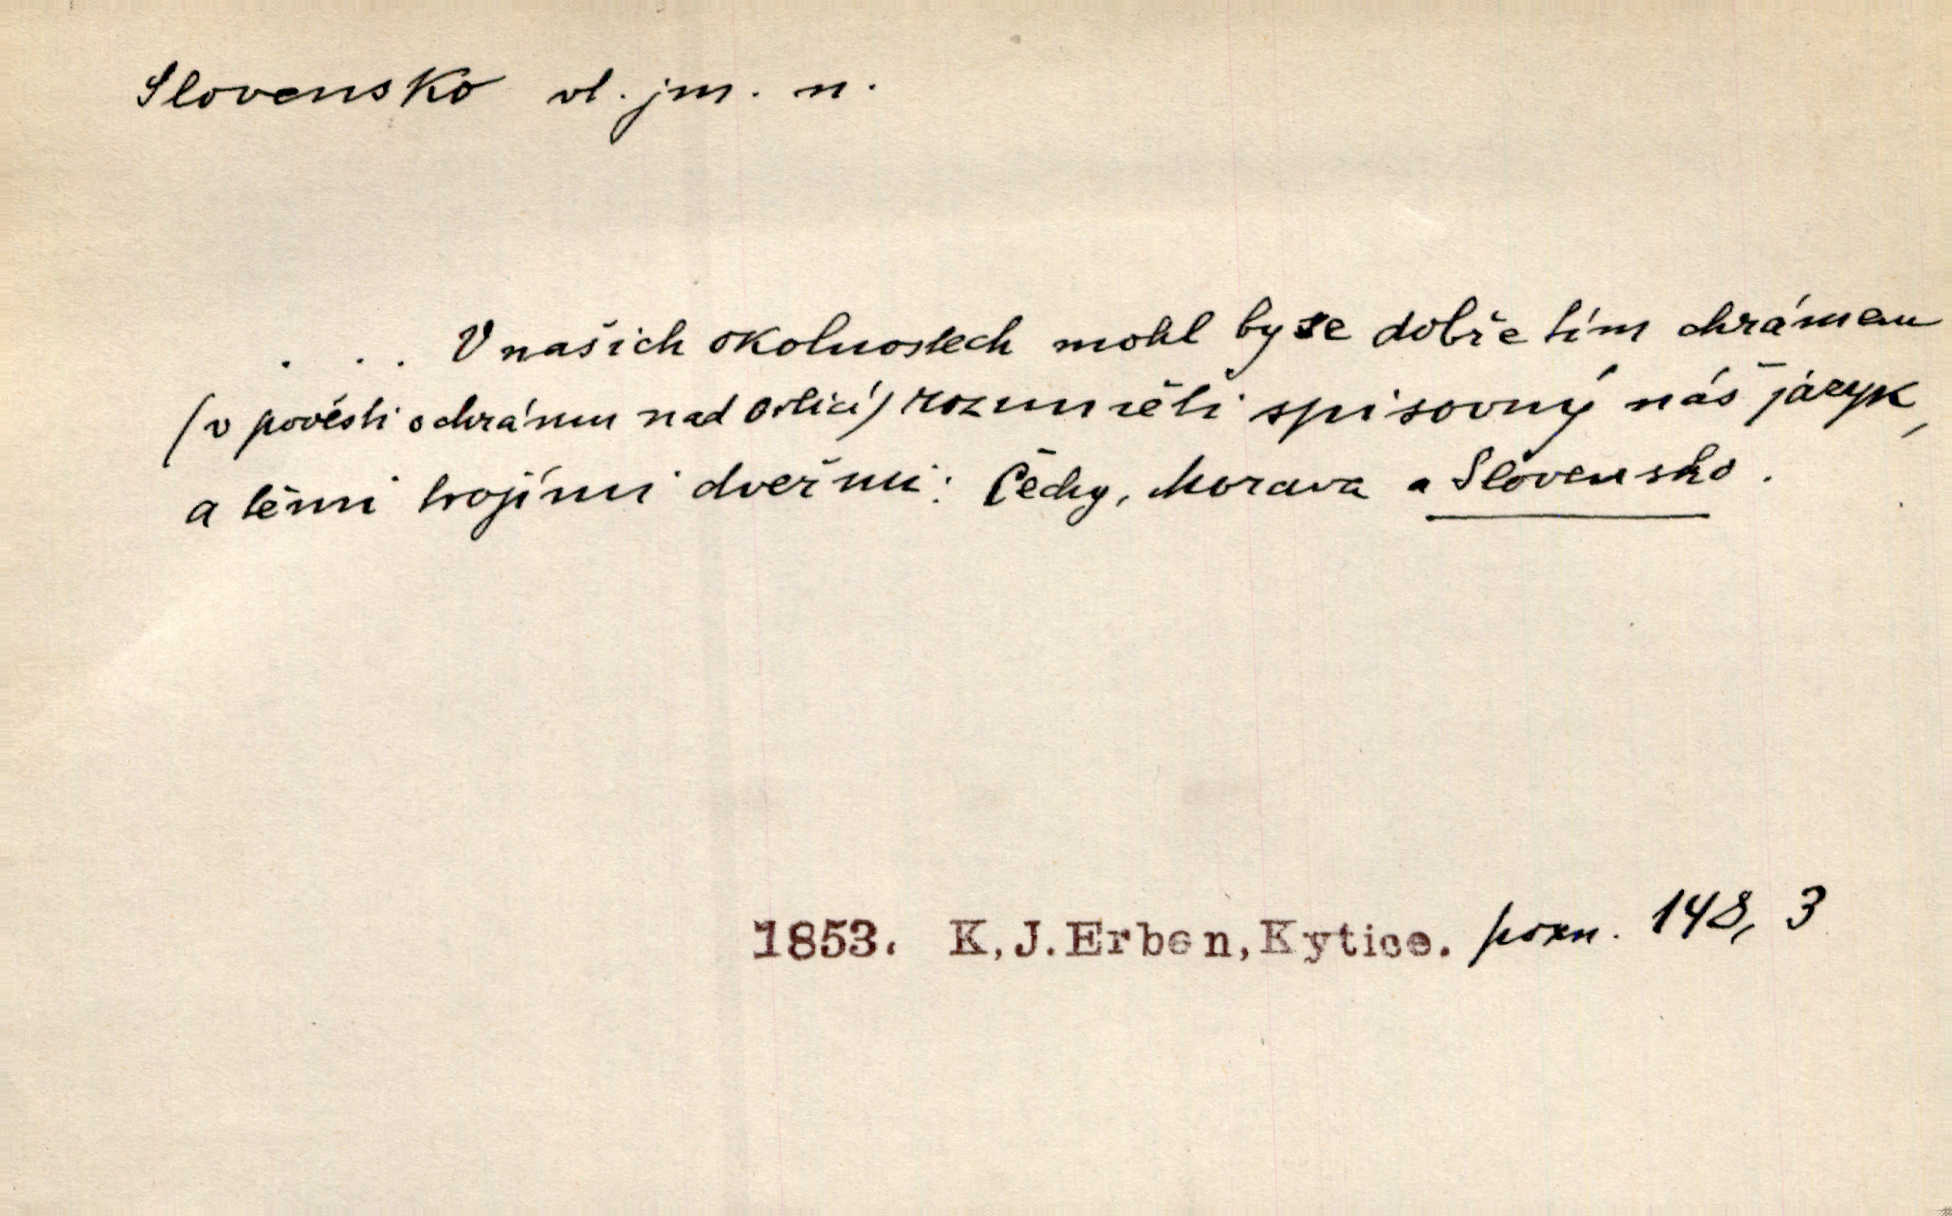 Slovensko vl. jm. n.
. . . V našich okolnostech mohl by se dobře tím chrámem
(v pověsti o chrámu nad Orlicí) rozuměti spisovný náš jazyk,
a těmi trojími dveřmi: Čechy, Morava a Slovensko.
1853. K.J.Erben,Kytice. pozn. 148, 3